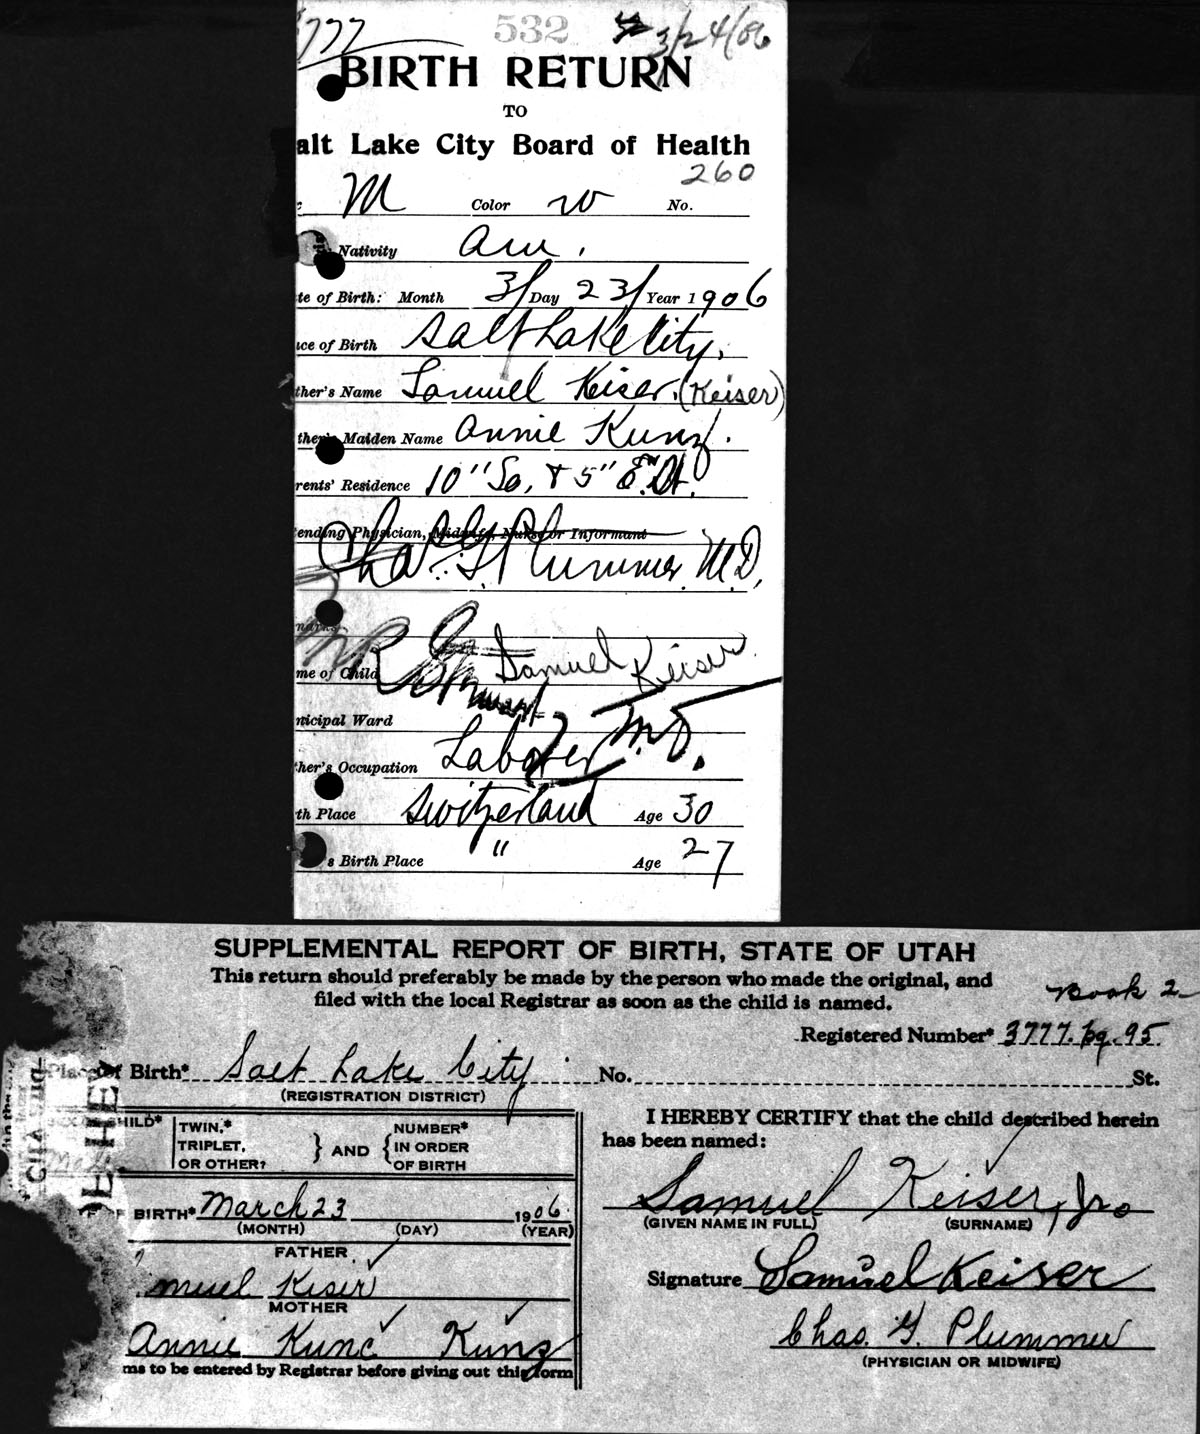 3777 532 3/24/06
BIRTH RETURN
TO
alt Lake City Board of Health
260
M Color W No.
Nativity Am.
te of Birth: Month 3/ Day 23/ Year 1906
ace of Birth Salt Lake City.
ther's Name Samuel Keiser. (Keiser)
ther's Maiden Name Annie Kunz.
rents' Residence 10" So. & 5" E. St.
ending Physician, Midwife, Nurse or Informant
Chas. G. Plummer. M.D.
marks
me of Child Samuel Keiser
nicipal Ward
M.D.
her's Occupation Laborer
th Place Switzerland Age 30
s Birth Place " Age 27
SUPPLEMENTAL REPORT OF BIRTH, STATE OF UTAH
This return should preferably be made by the person who made the original, and
filed with the local Registrar as soon as the child is named.
Book 2
Registered Number* 3777. pg. 95.
Place of Birth* Salt Lake City No. St.
(REGISTRATION DISTRICT)
CHILD* TWIN,* TRIPLET, OR OTHER? } AND { NUMBER* IN ORDER OF BIRTH
I HEREBY CERTIFY that the child described herein
has been named:
Samuel Keiser, Jr.
(GIVEN NAME IN FULL) (SURNAME)
OF BIRTH* March 23 1906
(MONTH) (DAY) (YEAR)
FATHER
muel Keiser
MOTHER
Annie Kunc Kunz
ms to be entered by Registrar before giving out this form
Signature Samuel Keiser
Chas. G. Plummer
(PHYSICIAN OR MIDWIFE)